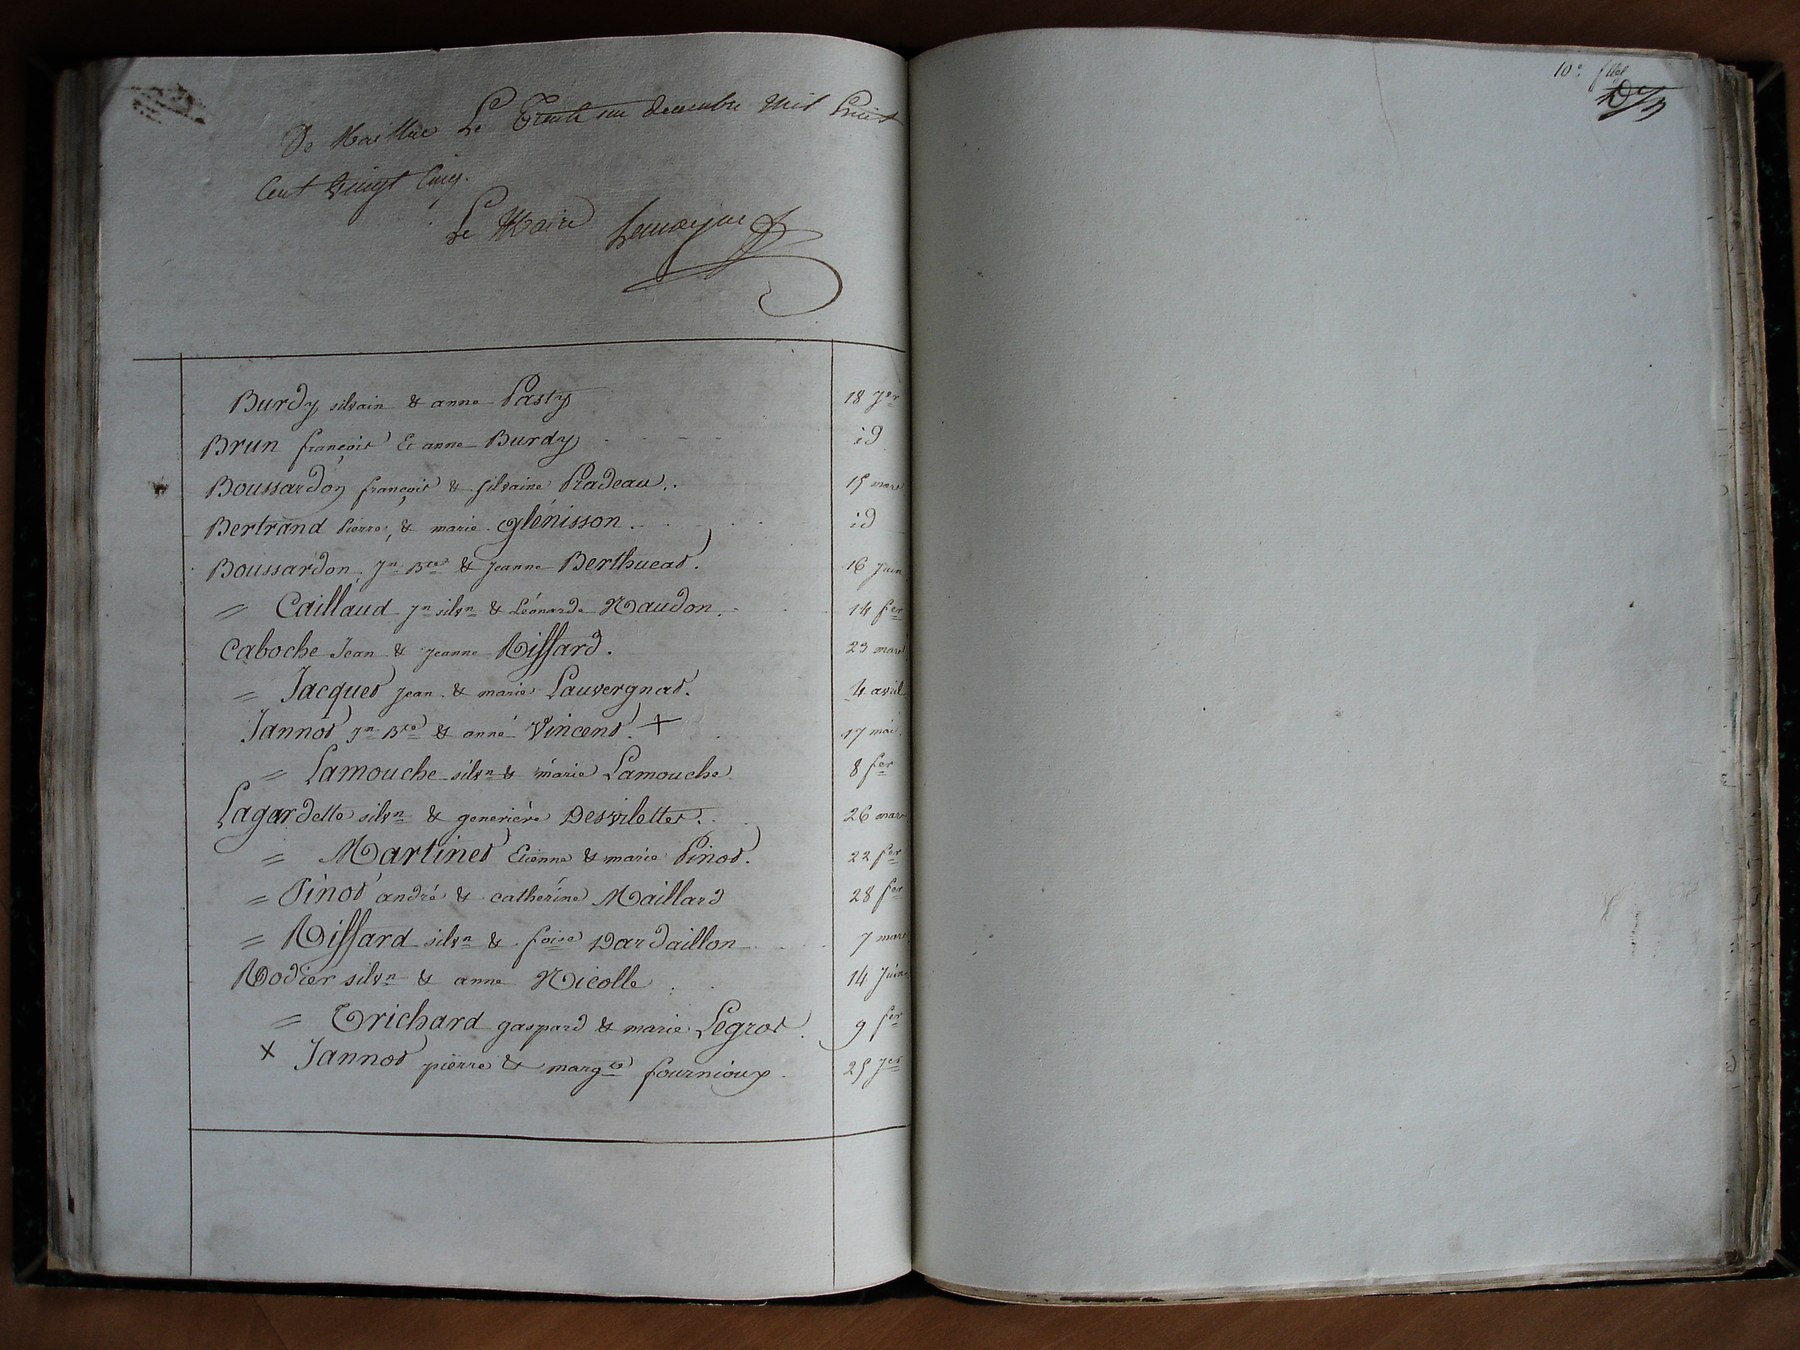 De Le Trente un decembre mil huit
Cent Vingt Cinq.
Le Maire
Burdy silvain & anne Pasty 18 Jer
Brun françois Et anne Burdy id
Boussardon françois & silvaine Pradeau 15 mars
Bertrand Pierre, & marie glénisson id
Boussardon Jn Bte & Jeanne Berthueat. 16 Juin
= Caillaud Jn silvn & Léonarde Naudon 14 fer
Caboche Jean & Jeanne Riffard. 23 mars
= Jacquet Jean & marie Lauvergnat. 4 avril
Jannot Jn Bte & anne Vincent. + 17 mai
= Lamouche silvn & marie Lamouche 8 fer
Lagardette silvn & generière Desvilettes. 26 mars
= Martinet Etienne & marie Pinot. 22 fer
= Pinot andré & catherine Maillard 28 fer
= Riffard silvn & foise Dardaillon 7 mars
Rodier silvn & anne Nicolle 14 Juin
= Trichard gaspard & marie Legros 9 fer
x Jannot pierre & margte fournioux 25 Jer
10e